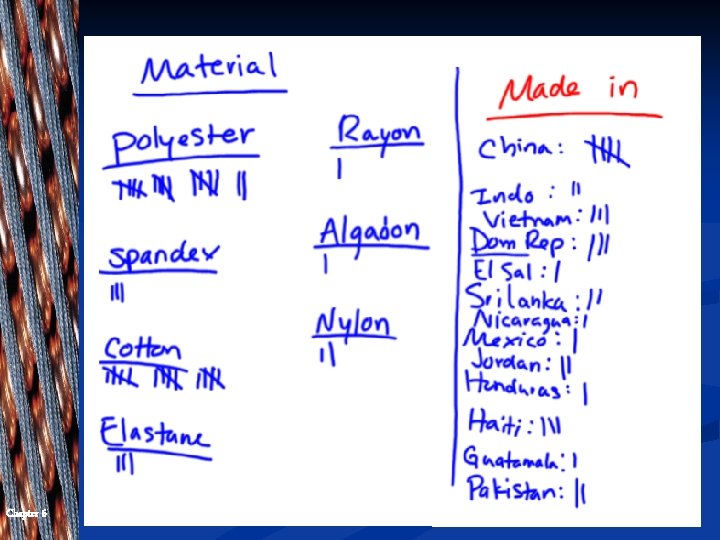 Material
Polyester
卌 卌 卌 ||
Spandex
|||
Cotton
卌 卌 卌
Elastane
|||
Rayon
|
Algadon
|
Nylon
||
Made in
China: 卌
Indo: ||
Vietnam: |||
Dom Rep: |||
El Sal: |
Sri lanka: ||
Nicaragua: |
Mexico: |
Jordan: ||
Honduras: |
Haiti: |||
Guatamala: |
Pakistan: ||
Chapter 6